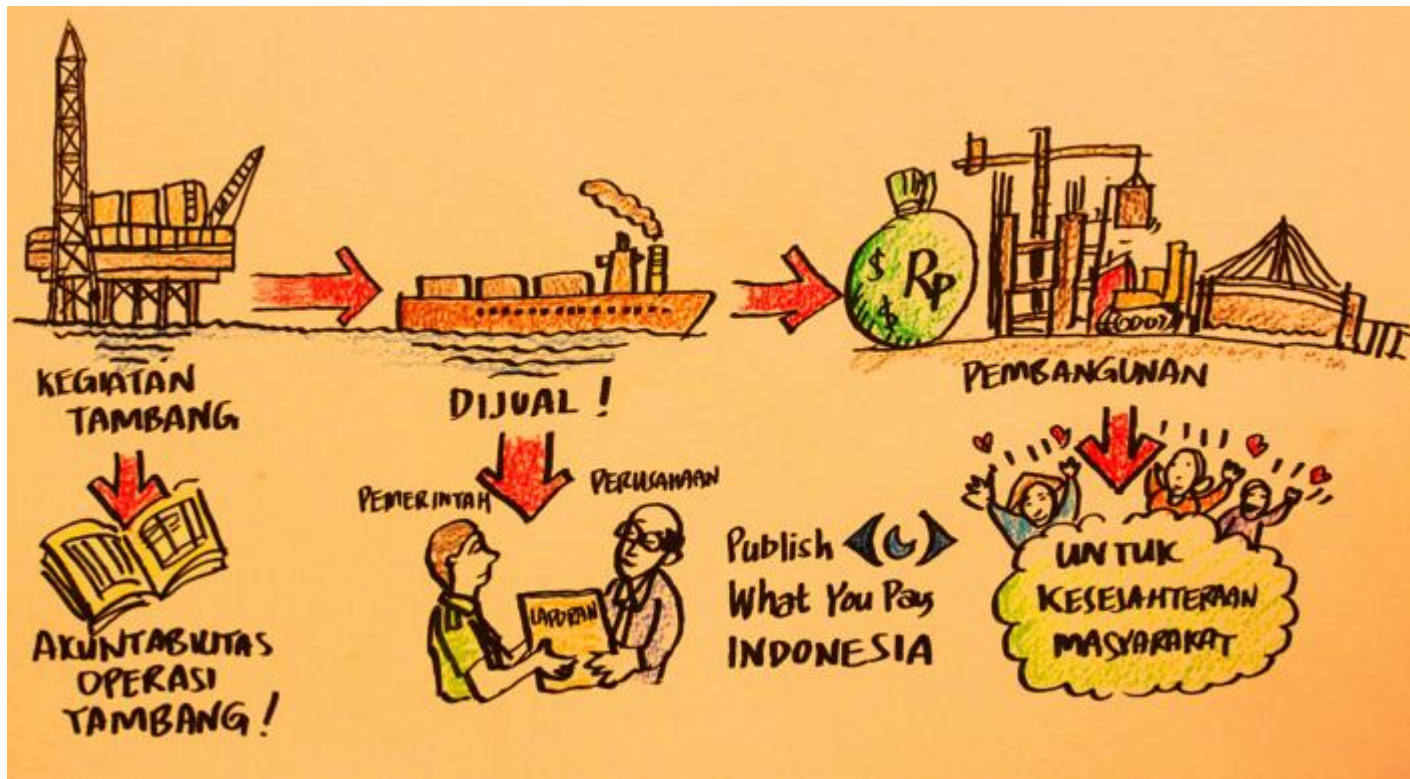 KEGIATAN
TAMBANG
AKUNTABILITAS
OPERASI
TAMBANG!
DIJUAL!
PEMERINTAH
PERUSAHAAN
LAPORAN
$ Rp
$
PEMBANGUNAN
Publish
What You Pay
INDONESIA
UNTUK
KESEJAHTERAAN
MASYARAKAT